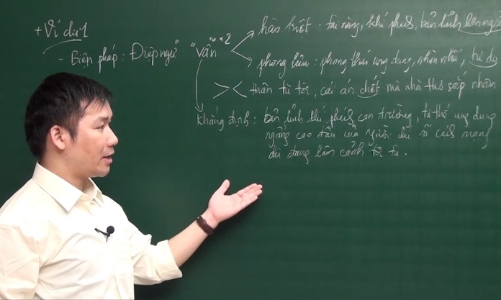 + Ví dụ 1
hào kiệt : tài năng, khí phách, bản lĩnh
- Biện pháp : Điệp ngữ "vẫn" 2
phong lưu : phong thái ung dung, nhàn nhã,
>< thân tù tội, cái án chết mà nhà thơ gặp
khẳng định : bản lĩnh khí phách con trường, tư thế ung dung
ngẩng cao đầu của người
dù đang lâm cảnh tù